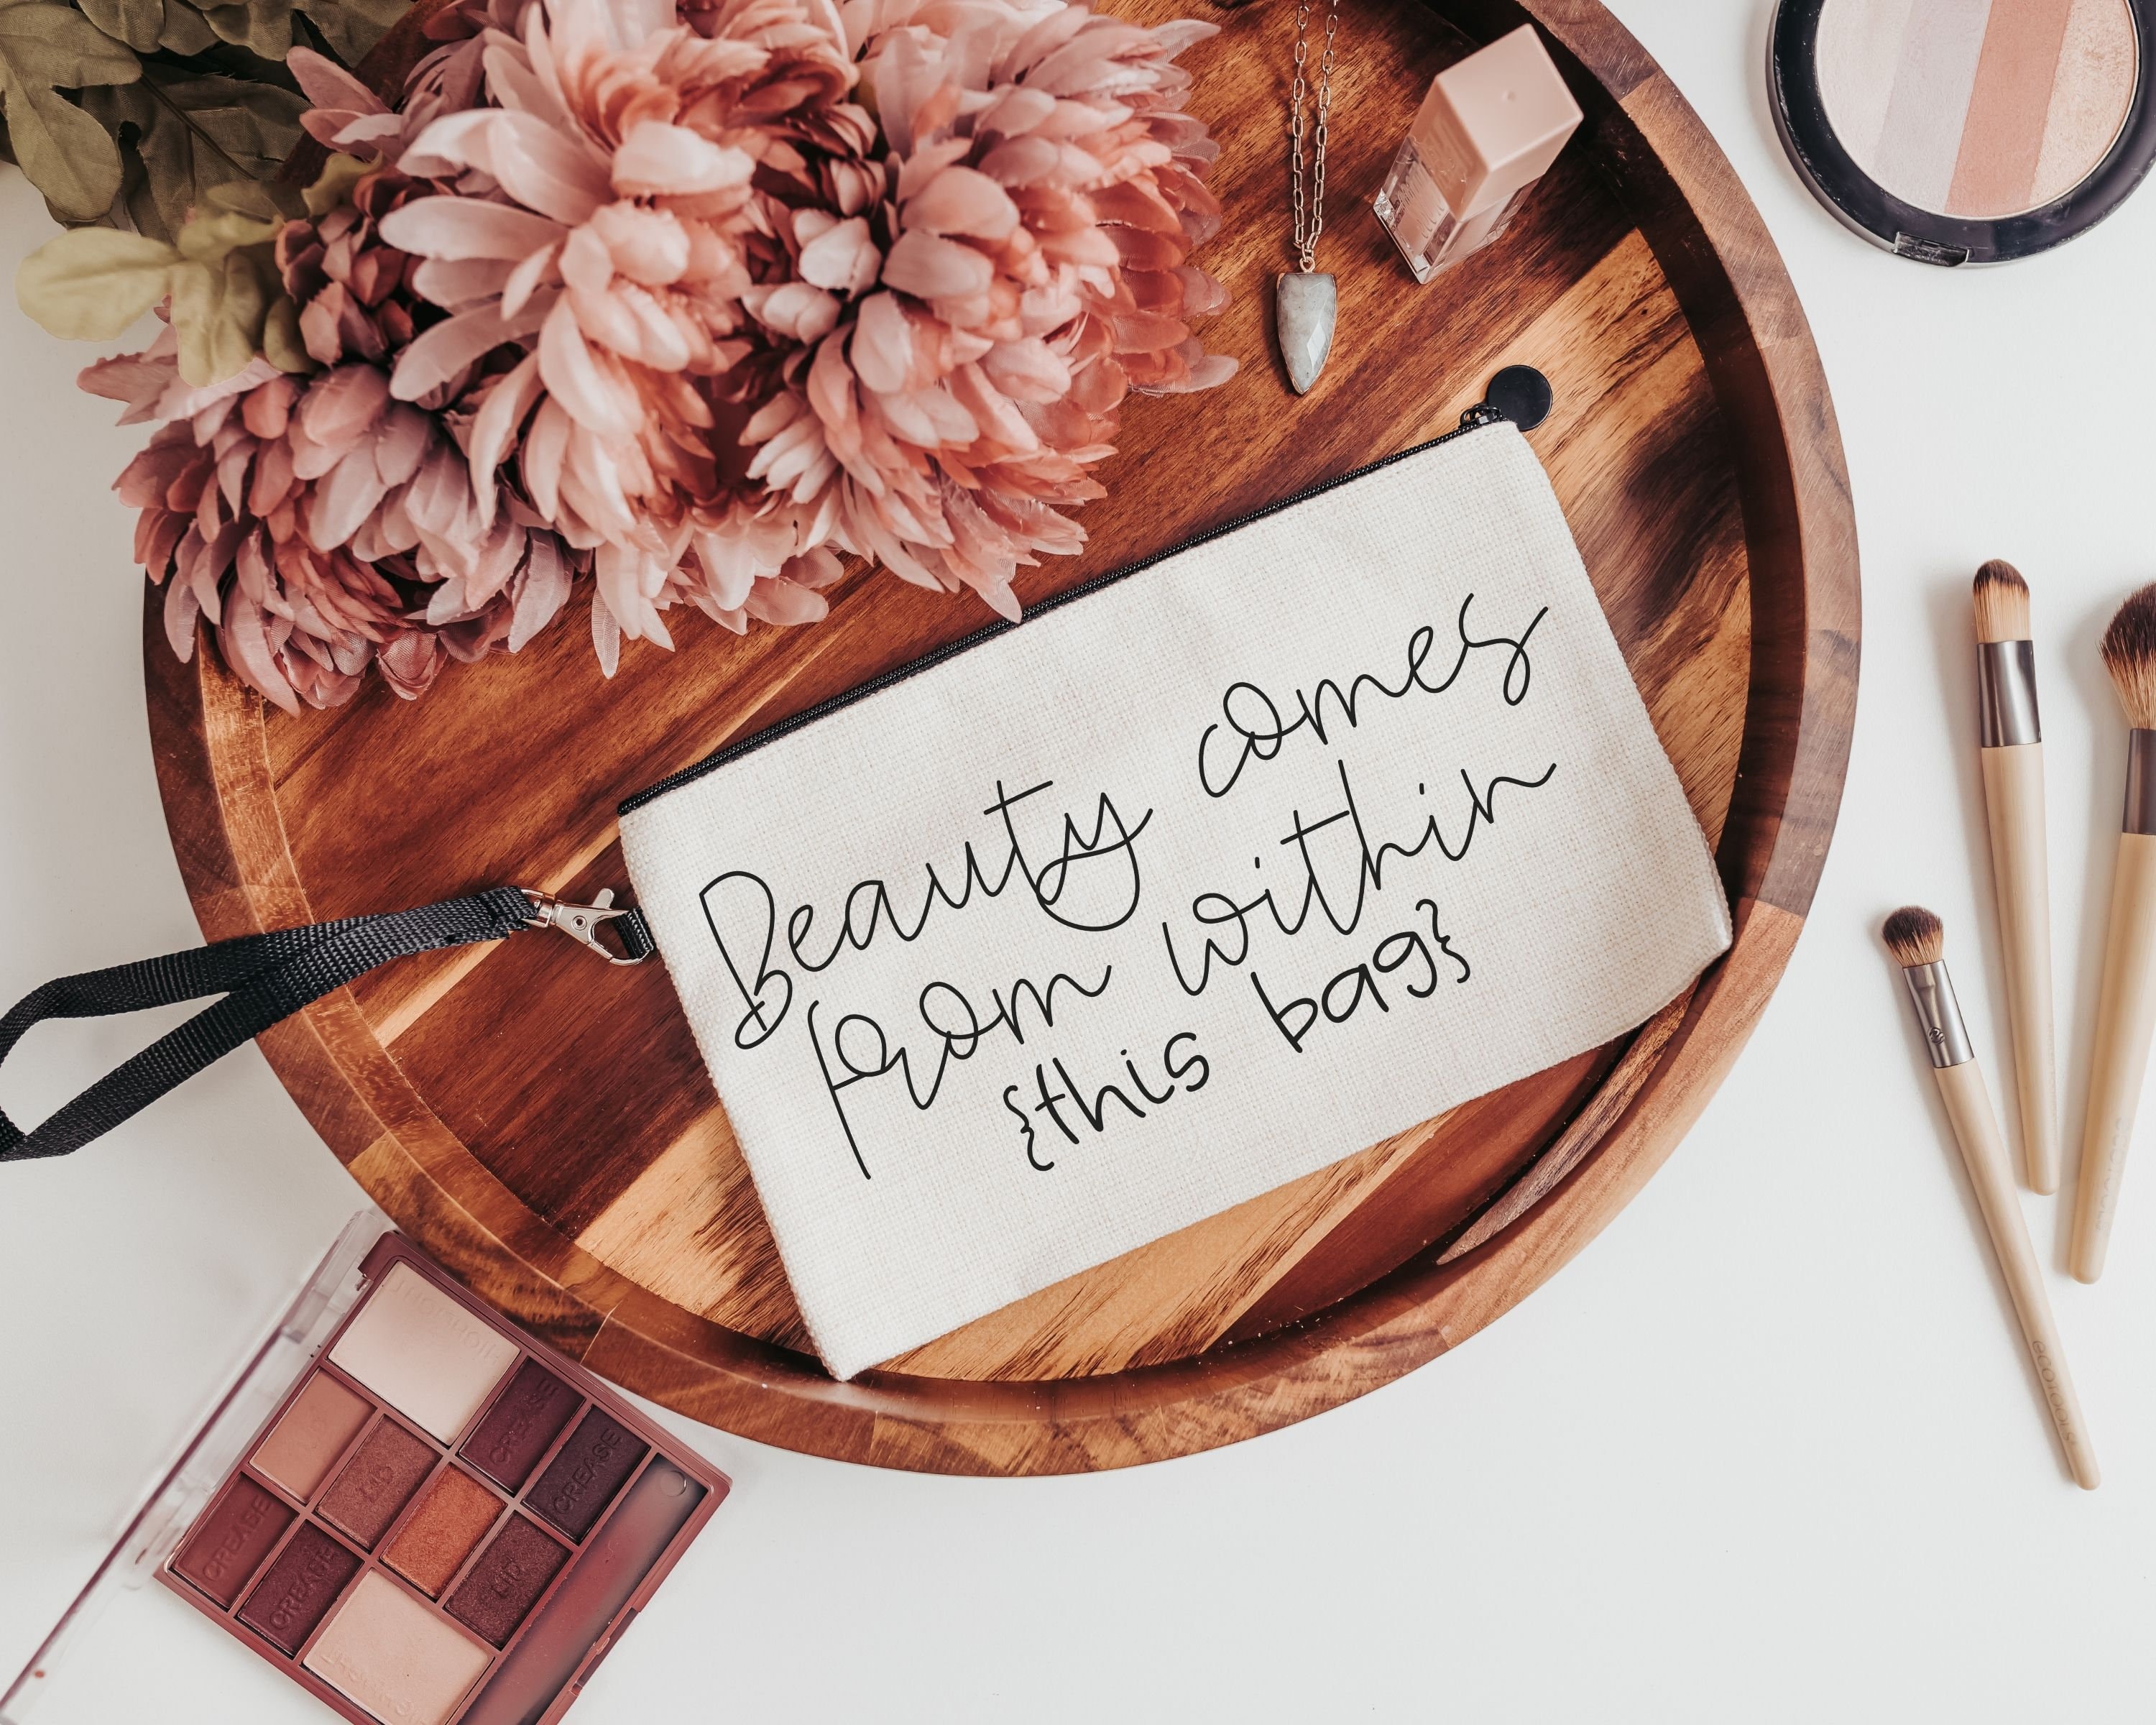 Beauty comes
from within
{this bag}
CREASE
CREASE
LID
CREASE
CREASE
LID
ecotools